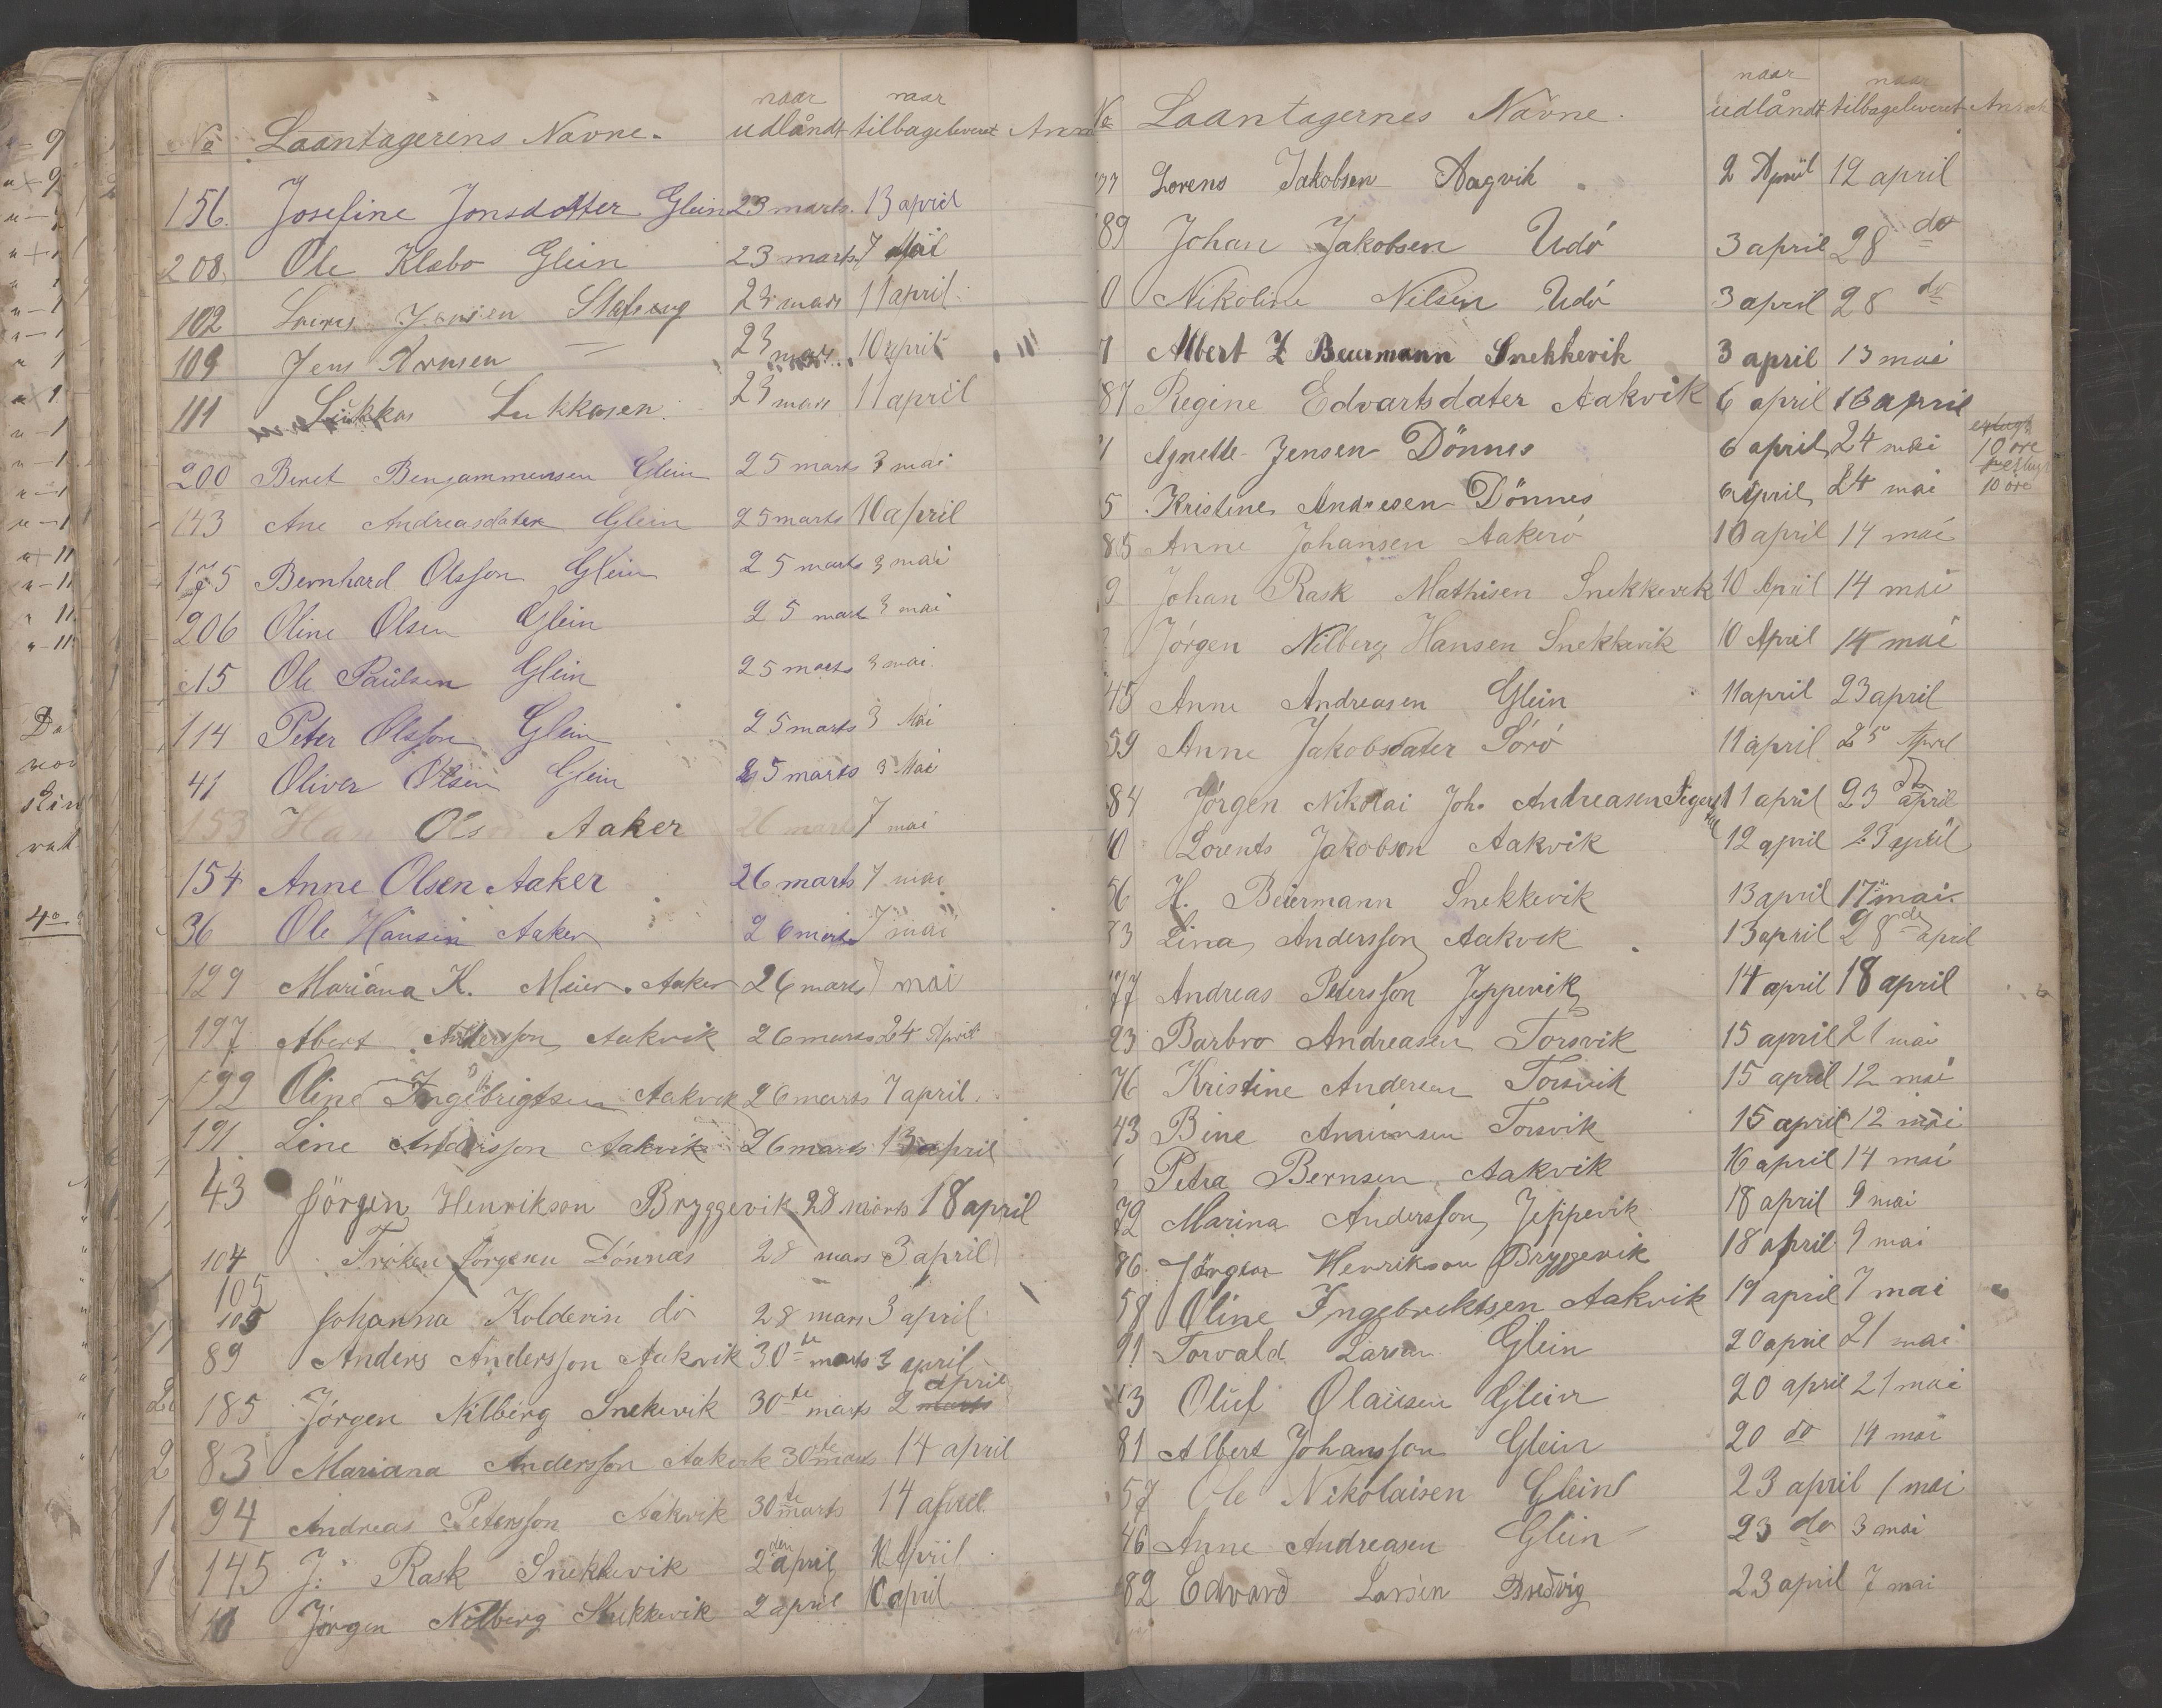 No Laantagerens Navne. naar udlåndt naar tilbageleveret Anm
156. Josefine Jonsdotter Glein 23 marts. 13 april
208. Ole Klæbo Glein 23 marts. 7
102 23 mars 11 april.
109 Jens 23 mars 10 april
111 Lukkas Lukkasen. 23 mars 11 april
200 Beret Glein 25 marts 3 mai
143 Ane Andreasdater Glein 25 marts 10 april
175 Bernhard Olsson Glein 25 marts 3 mai
206 Oline Olsen Glein 25 marts 3 mai
15 Ole Paulsen Glein 25 marts 3 mai.
114 Peter Olsson Glein 25 marts 3 Mai
41 Oliver Olsen Glein 25 marts 3 Mai
153 Ols Aaker 26 mars 7 mai
154 Anne Olsen Aaker 26 marts 7 mai
36 Ole Hansen Aaker 26 marts 7 mai
129 Mariana K. Meier. Aaker 26 mars 7 mai
197 Albert Andersson Aakvik 26 mars 24 April
192 Oline Ingebrigtsen Aakvik 26 mars 7 april.
191. Line Andersson Aakvik 26 mars 13 april
43 Jörgen Henrikson Bryggevik 28 marts 18 april
104 Fröken Dönnas 28 mars 3 april
105
105 Johanna Kolderin do 28 mars 3 april
89 Anders Andersson Aakvik 30te marts 3 april
185 Jörgen Nilberg Snekevik 30te marts 2 april
83 Mariana Andersson Aakvik 30te mars 14 april
94 Andreas Petersson Aakvik 30te marts 14 april
145 J. Rask Snekkevik 2den april 10 April
Jörgen Nilberg Snekkevik 2 april 10 april
No Laantagernes Navne. naar udlåndt naar tilbageleveret Anm
Lorens Jakobsen Aagvik 2 April 12 april
89 Johan Jakobsen Udö 3 april 28 do
0 Nikoline Nilsen Udö 3 april 28 do
7 Albert Z Beiermann Snekkevik 3 april 13 mai
87 Regine Edvartsdater Aakvik 6 april 16 april
Agnette Jensen Dönnes 6 april 24 mai 10 öre
5 Kristine Andresen Dönnes 6 April 24 mai 10 öre
85 Anne Johansen Aakerö 10 april 14 mai
9 Johan Rask Mathisen Snekkevik 10 April 14 mai
Jörgen Nilberg Hansen Snekkevik 10 April 14 mai
45 Anne Andreasen Glein 11 april 23 april
59 Anne Jakobsdater Sörö 11 april 25 April
84 Jörgen Nikolai Joh. Andreasen 11 april 23 april
10 Lorents Jakobson Aakvik 12 april 23 april
56 H. Beiermann Snekkevik 13 april 17 mai.
83 Lina Andersson Aakvik 13 april 28de april
77 Andreas Petersson Jeppevik 14 april 18 april
23 Barbro Andreasen Torsvik 15 april 21 mai
76 Kristine Andersen Torsvik 15 april 12 mai
43 Bine Torsvik 15 april 12 mai
Petra Bernsen Aakvik 16 april 14 mai
72 Marina Andersson Jeppevik 18 april 9 mai
86 Jörgen Henrikson Bryggevik 18 april 9 mai
58 Oline Ingebrektsen Aakvik 19 april 7 mai
91 Torvald Larsen Glein 20 april 21 mai
13 Oluf Olausen Glein 20 april 21 mai
81 Albert Johansson Glein 20 do 14 mai
57 Ole Nikolaisen Glein 23 april 1 mai
46 Anne Andreasen Glein 23 do 3 mai
82 Edvard Larsen Bredvig 23 april 7 mai